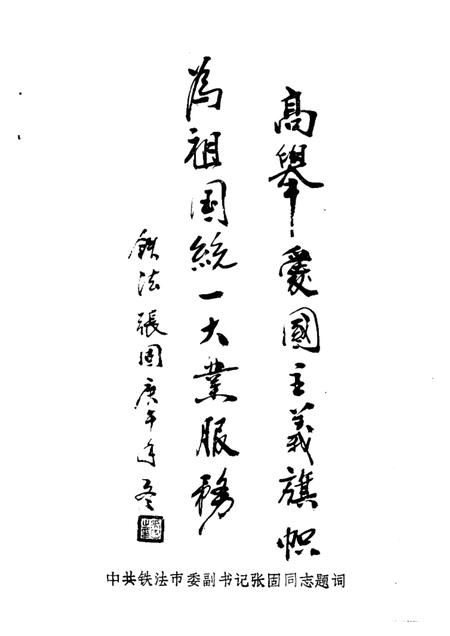 高舉愛國主義旗幟
為祖国統一大業服務
铁法張固庚午年冬
中共铁法市委副书记张固同志题词